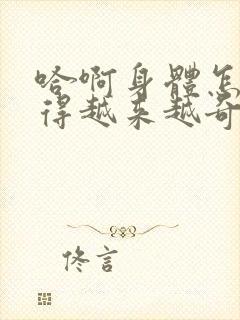 哈啊身體怎
得越来越奇
佟言